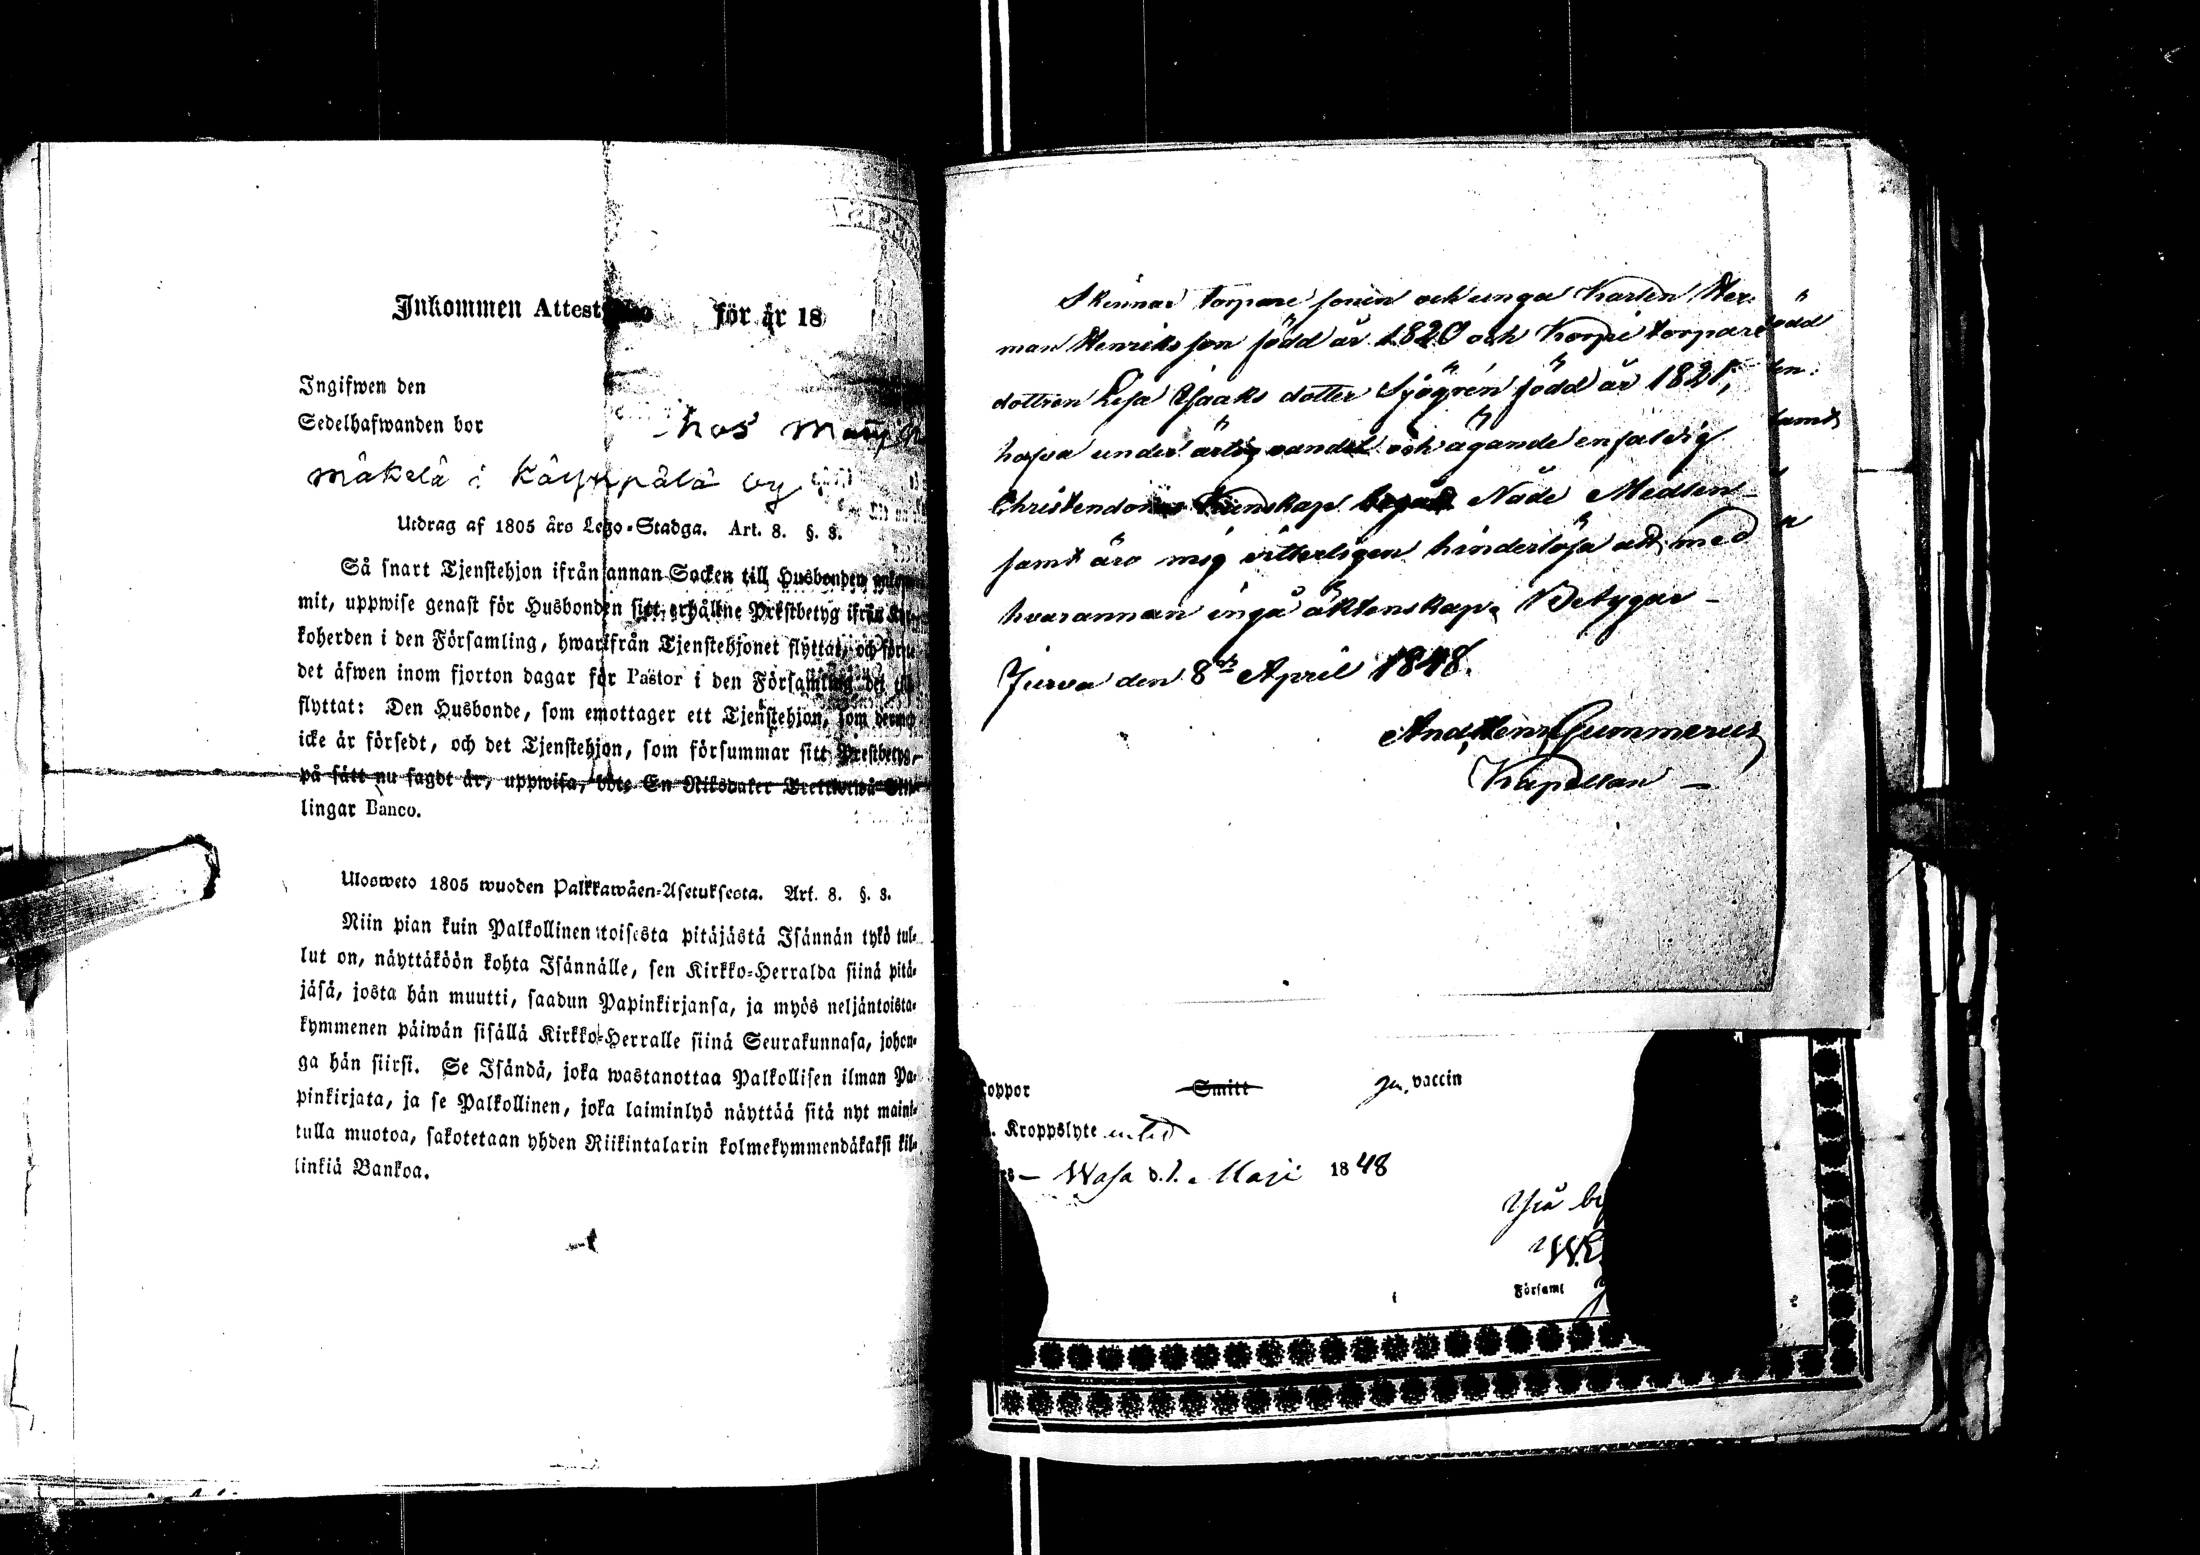 Inkommen Attest för år 18
Ingifwen den
Sedelhafwanden bor hos
Mäkelä i by
Utdrag af 1805 års Lego-Stadga. Art. 8. §. 3.
Så snart Tjenstehjon ifrån annan Socken till Husbonden
mit, uppwise genast för Husbonden sitt erhållne Prestbetyg ifrån
koherden i den Församling, hwarifrån Tjenstehjonet flyttat, och
det äfwen inom fjorton dagar för Pastor i den Församling det
flyttat: Den Husbonde, som emottager ett Tjenstehjon, som dermed
icke är försedt, och det Tjenstehjon, som försummar sitt Prestbetyg,
på sätt nu sagdt är, uppwisa, böte En Riksdaler Trettiotwå
lingar Banco.
Ulosweto 1805 wuoden Palkkawäen-Asetuksesta. Art. 8. §. 3.
Niin pian kuin Palkollinen toisesta pitäjästä Isännän tykö tul-
lut on, näyttäköön kohta Isännälle, sen Kirkko-Herralda siinä pitä-
jäsä, josta hän muutti, saadun Papinkirjansa, ja myös neljäntoista-
kymmenen päiwän sisällä Kirkko-Herralle siinä Seurakunnasa, johon-
ga hän siirsi. Se Isändä, joka wastanottaa Palkollisen ilman Pa-
pinkirjata, ja se Palkollinen, joka laiminlyö näyttää sitä nyt maini-
tulla muotoa, sakotetaan yhden Riikintalarin kolmekymmendäkaksi kil-
linkiä Bankoa.
Skinnar torpare sonen och unga Karlen Her-
man Henriksson född år 1820 och Korpi torpare
dottren Lisa Isaaks dotter Sjögren född år 1821,
hafva under ärlig vandel och ägande enfaldig
Christendoms Kunskap begått Nåde Medlen
samt äro mig vitterligen hinderlösa att med
hvarannan ingå äktenskap. Betygar
Jurva den 8de April 1848.
And. Henr. Gummerus
Kapellan
född
samt
koppor Smitt vaccin
Kroppslyte
Wasa d. 1. Maji 1848
Församl